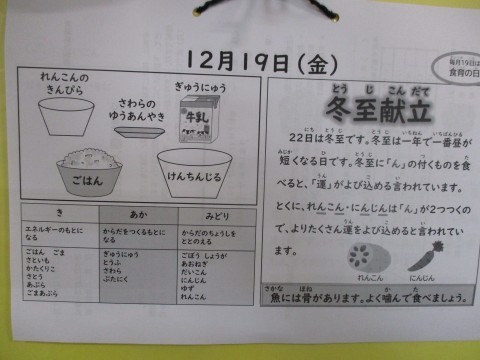 12月19日(金)
毎月19日は
食育の日
れんこんの
きんぴら
さわらの
ゆうあんやき
ぎゅうにゅう
牛乳
ごはん
けんちんじる
き
あか
みどり
エネルギーのもとに
なる
からだをつくるもとにな
る
からだのちょうしを
ととのえる
ごはん ごま
さといも
かたくりこ
さとう
あぶら
ごまあぶら
ぎゅうにゅう
とうふ
さわら
ぶたにく
ごぼう しょうが
あおねぎ
だいこん
にんじん
ゆず
れんこん
とう じ こん だて
冬至献立
22日は冬至です。冬至は一年で一番昼が
短くなる日です。冬至に「ん」の付くものを食
べると、「運」がよび込める言われています。
とくに、れんこん・にんじんは「ん」が2つつくの
で、よりたくさん運をよび込めると言われてい
ます。
れんこん
にんじん
魚には骨があります。よく噛んで食べましょう。